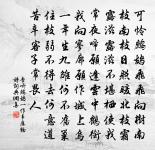 可憐鷓鴣飛飛向樹南
枝南枝日照暖北枝霜
露滋露滋不堪棲使我
常夜啼願逢雲中鶴銜
我向寥廓願作城上烏
一年生九雛何不舊巢
住枝弱不得去何意道
苦辛客子常畏人